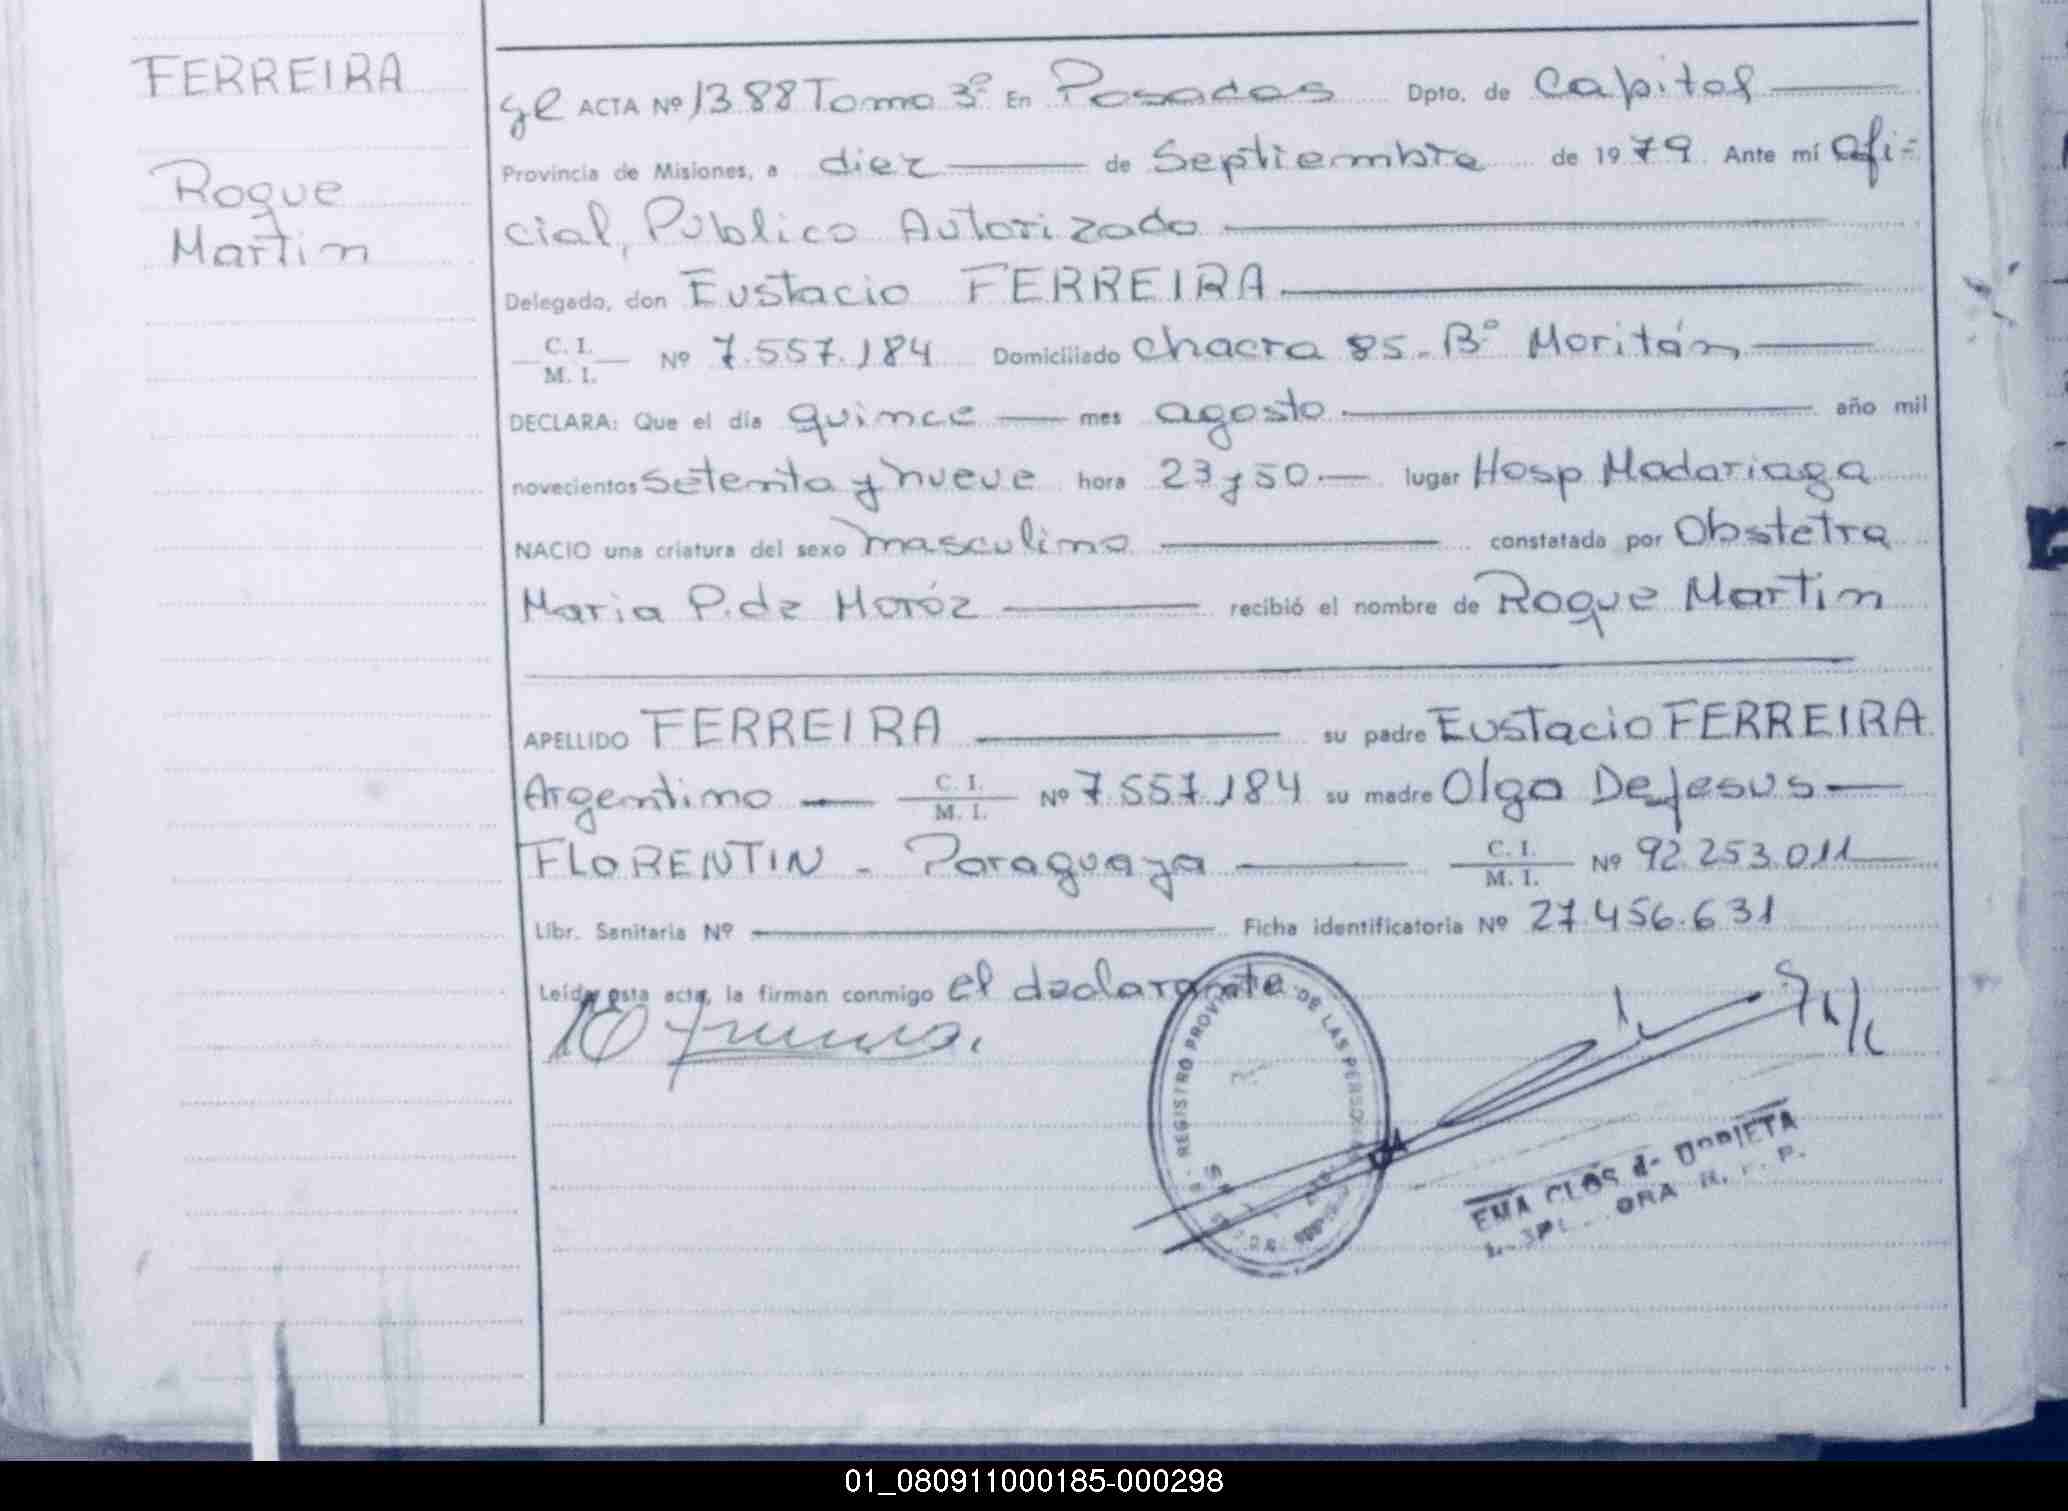 FERREIRA
Roque
Martin
ACTA Nº 1388 Tomo 3º En Posadas Dpto. de Capital
Provincia de Misiones, a diez de Septiembre de 1979. Ante mí Ofi-
cial, Público Autorizado
Delegado, don Eustacio FERREIRA
C. I.
M. I. Nº 7.557.184 Domiciliado Chacra 85. Bº
DECLARA: Que el día quince mes agosto año mil
novecientos setenta y nueve hora 23 y 50 lugar Hosp Madariaga
NACIO una criatura del sexo masculino constatada por Obstetra
Maria P. de Moróz recibió el nombre de Roque Martin
APELLIDO FERREIRA su padre Eustacio FERREIRA
Argentino C. I.
M. I. Nº 7.557.184 su madre Olga De Jesus
FLORENTIN - Paraguaya C. I.
M. I. Nº 92.253.011
Libr. Sanitaria Nº Ficha identificatoria Nº 27.456.631
Leída esta acta, la firman conmigo el declarante
REGISTRO DE LAS
EMA CLOS de
01_080911000185-000298